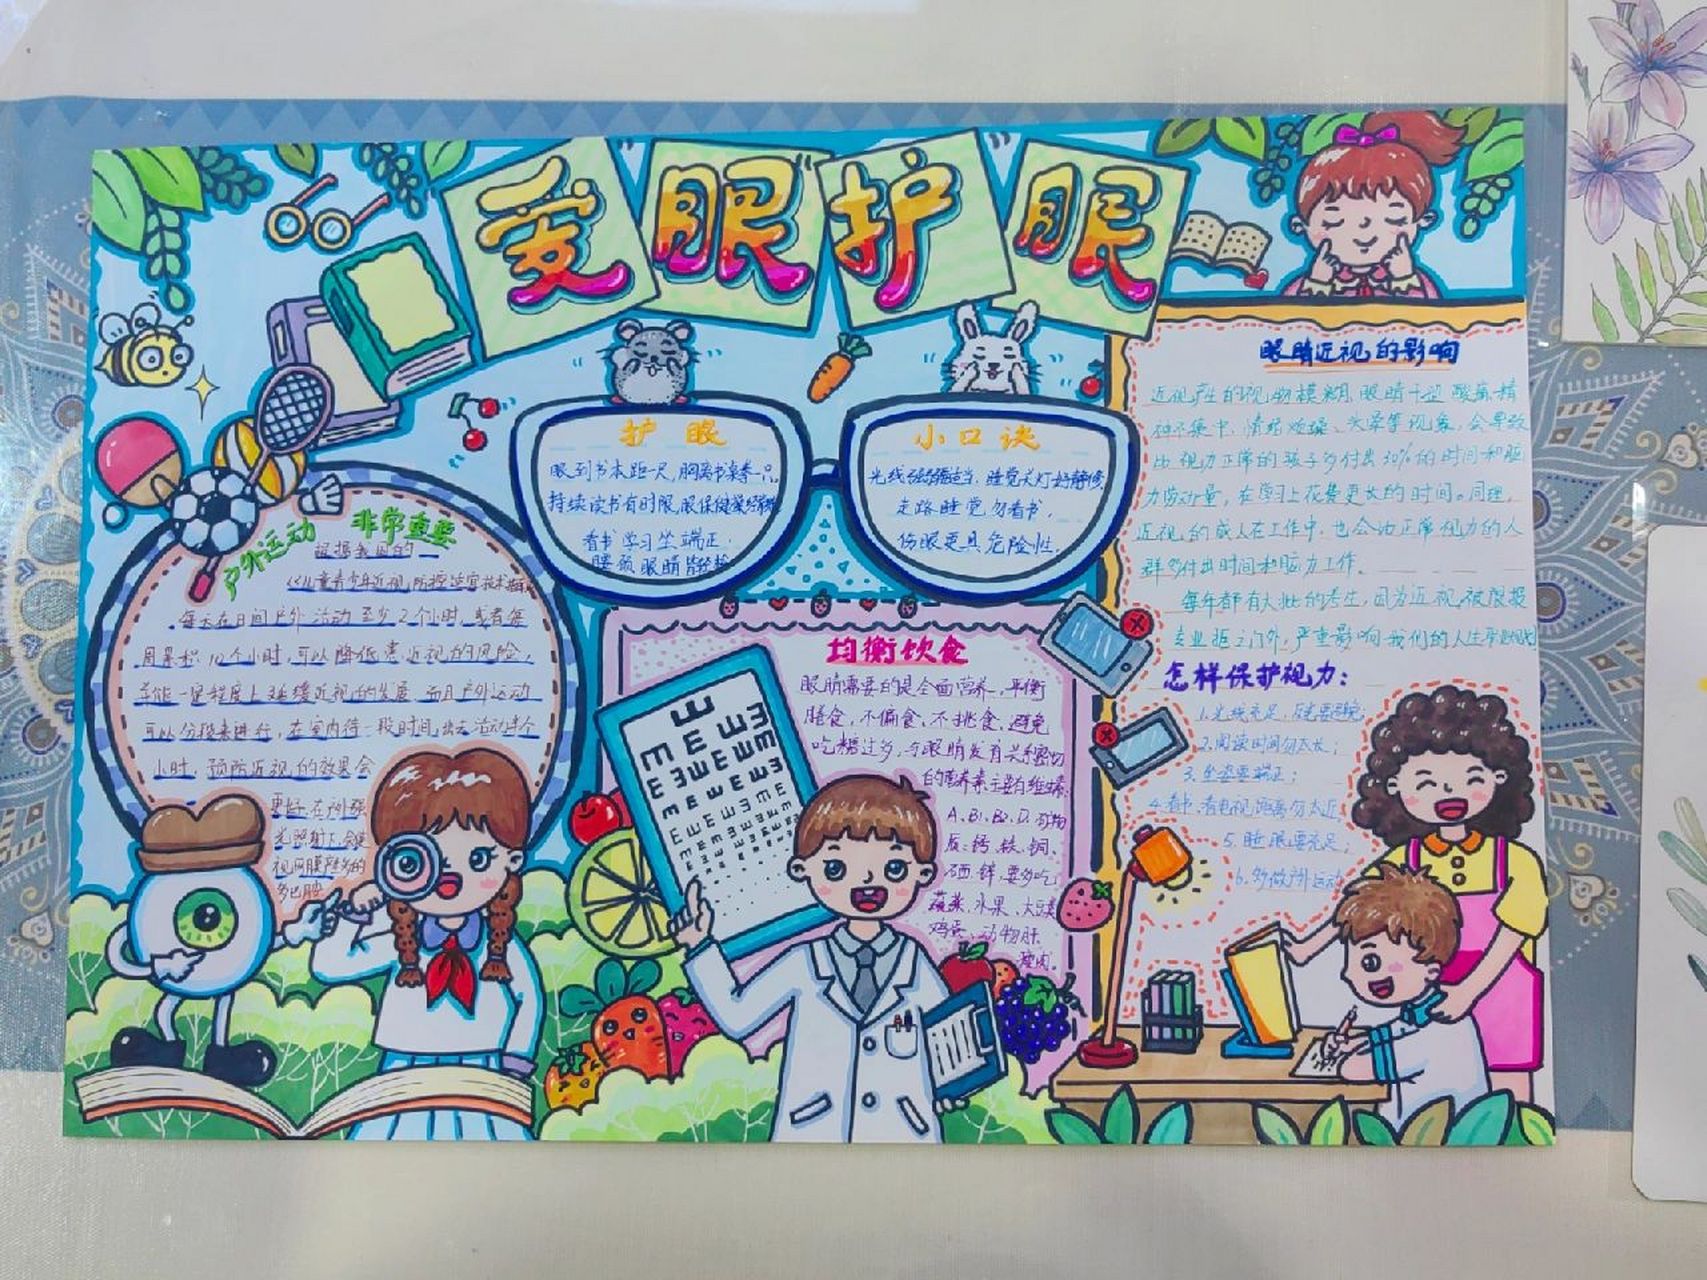 爱眼护眼
护眼
眼到书本距一尺,胸离书桌拳一只。
持续读书有时限,眼保健操经常做
看书学习坐端正,
腰颈眼睛皆轻松
小口诀
光线强弱适当,睡觉关灯好静修
走路睡觉勿看书,
伤眼更具危险性。
户外运动 非常重要
根据我国的
《儿童青少年近视防控适宜技术指南》
每天在日间户外活动至少2个小时,或者每
周累积10个小时,可以降低患近视的风险,
并能一定程度上延缓近视的发展,而且户外运动
可以分段来进行,在室内待一段时间,出去活动半个
小时,预防近视的效果会
更好,在强
光照射下,会使
视网膜产生多的
多巴胺
均衡饮食
眼睛需要的是全面营养,平衡
膳食,不偏食、不挑食,避免
吃糖过多,与眼睛发育关系密切
的营养素主要有维生素:
A、B1、B2、D、矿物
质:钙、铁、铜、
硒、锌,要多吃
蔬菜、水果、大豆类
鸡蛋、动物肝
瘦肉。
眼睛近视的影响
近视产生的视物模糊,眼睛干涩、酸痛、精
神不集中、情绪烦躁、头晕等现象,会导致
比视力正常的孩子多付出30%的时间和脑
力劳动量,在学习上花费更长的时间。同理,
近视的成人在工作中,也会比正常视力的人
群多付出时间和脑力工作。
每年都有大批的考生,因为近视,被限报
专业拒之门外,严重影响我们的人生
怎样保护视力:
1.光线充足,反光要避免;
2.阅读时间勿太长;
3.坐姿要端正;
4.看书、看电视距离勿太近
5.睡眠要充足;
6.多做户外运动